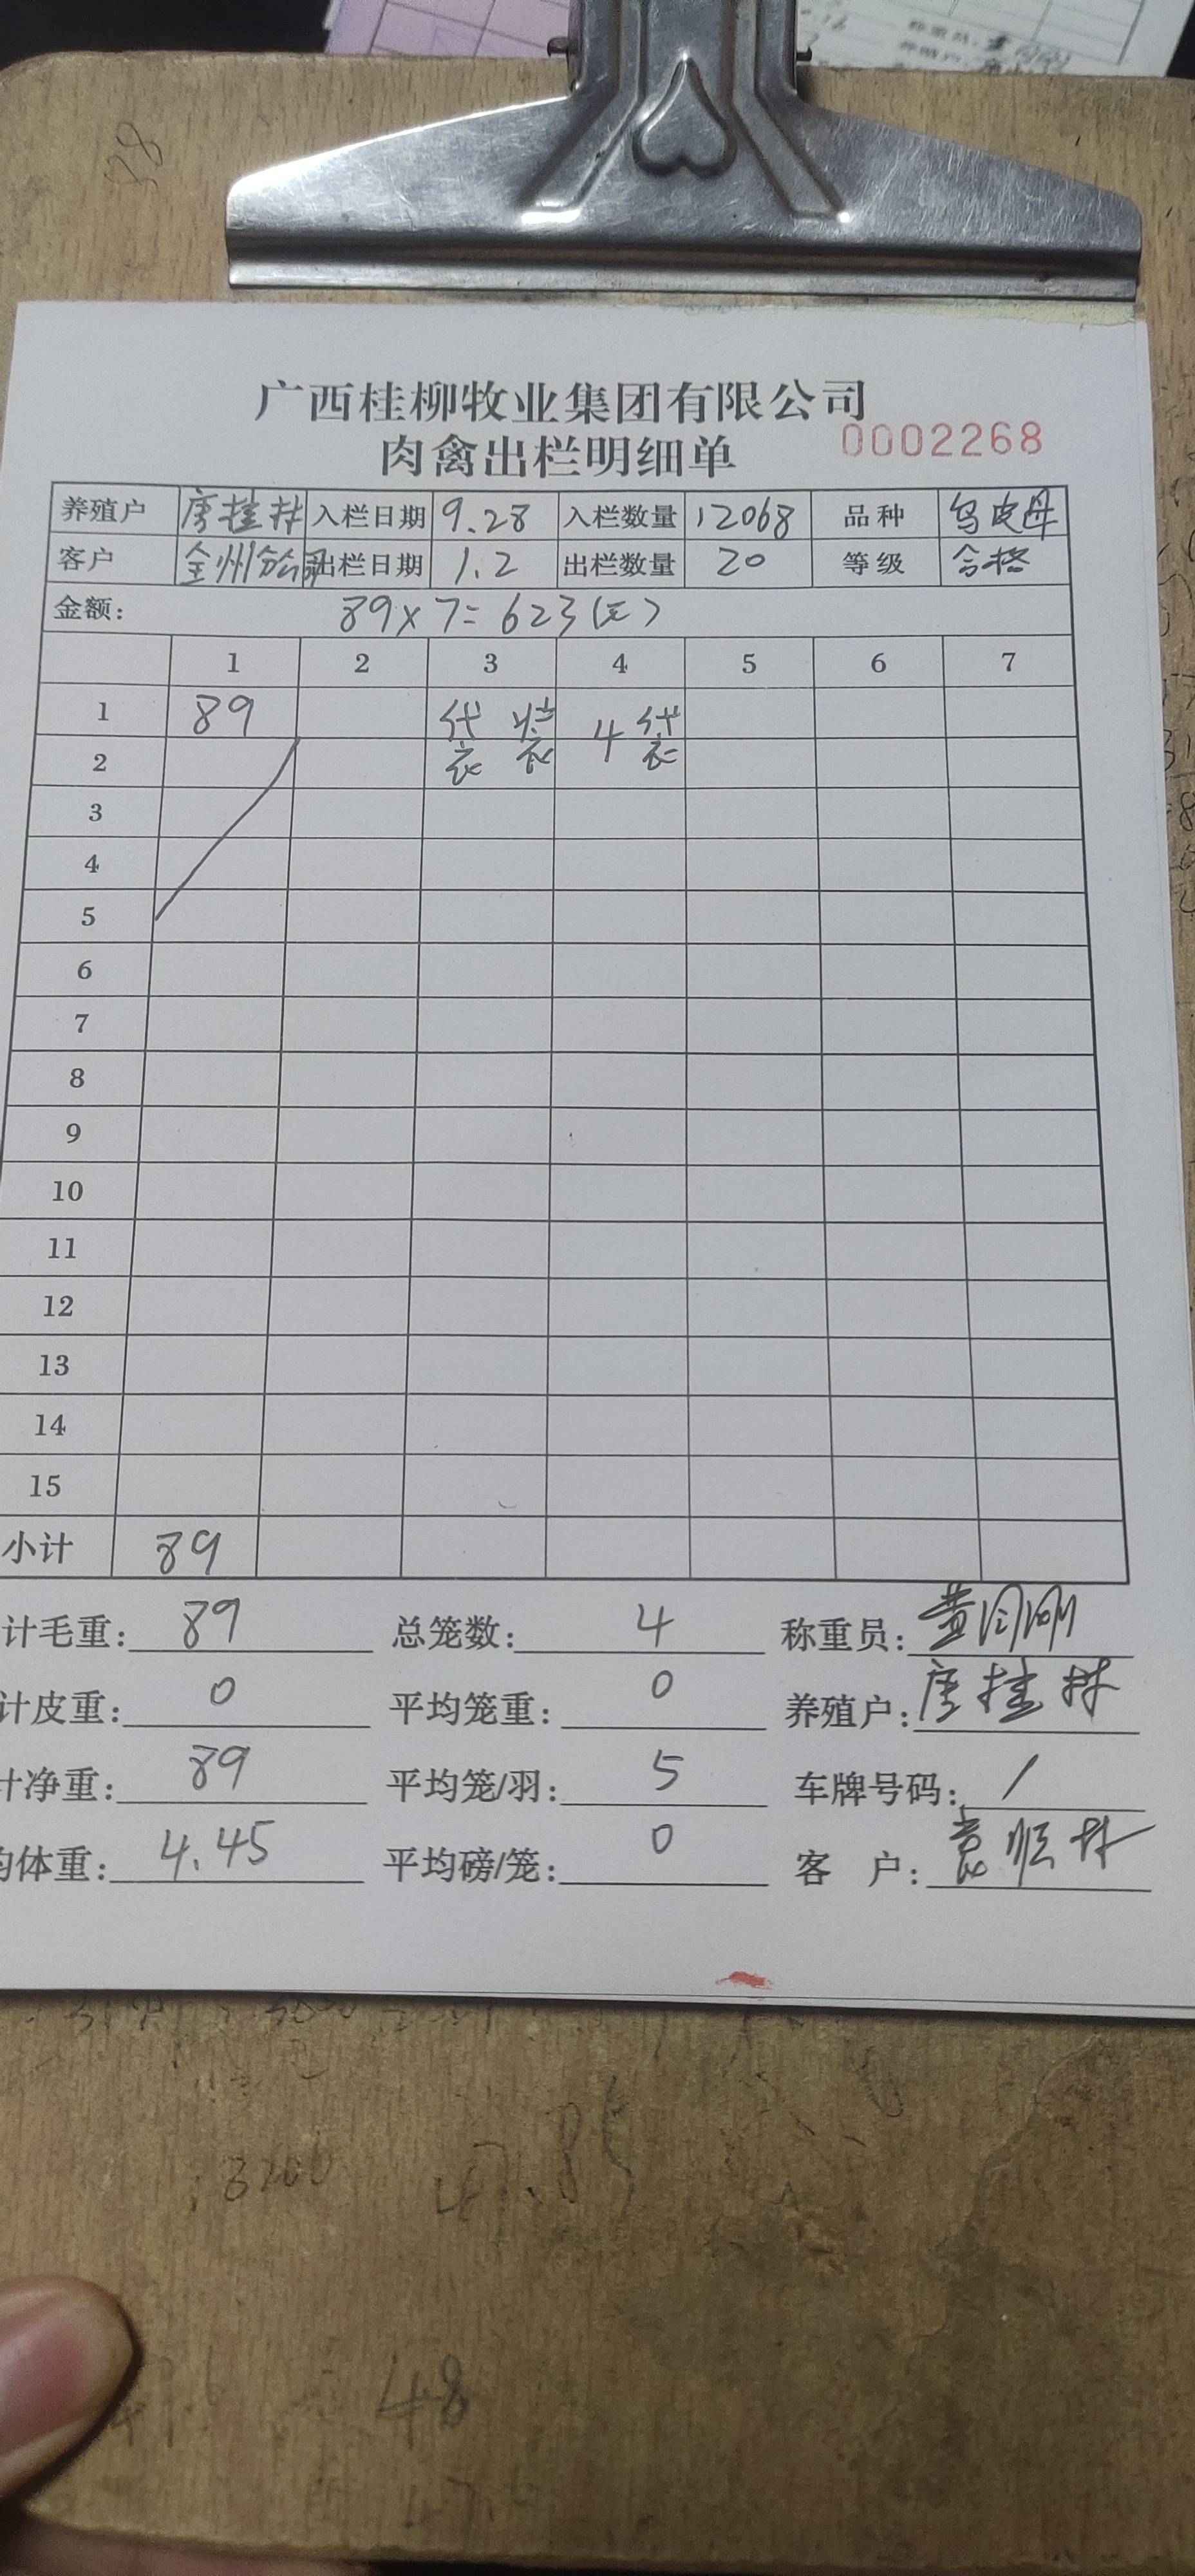 广西桂柳牧业集团有限公司
肉禽出栏明细单 0002268
养殖户 唐桂林 入栏日期 9.28 入栏数量 12068 品种 乌皮母
客户 全州分公司 出栏日期 1.2 出栏数量 20 等级 合格
金额: 89×7=623(元)
1 2 3 4 5 6 7
1 89 4
2
3
4
5
6
7
8
9
10
11
12
13
14
15
小计 89
计毛重: 89 总笼数: 4 称重员:
计皮重: 0 平均笼重: 0 养殖户: 唐桂林
计净重: 89 平均笼/羽: 5 车牌号码: /
均体重: 4.45 平均磅/笼: 0 客户: 袁顺林
48